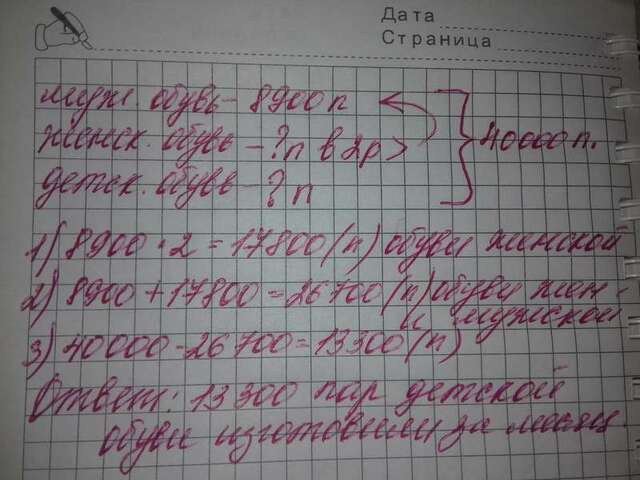 Дата
Страница
муж. обувь - 8900 п
женск. обувь - ? п в 2р >
40000 п.
детск. обувь - ? п
1) 8900 · 2 = 17800 (п) обуви женской
2) 8900 + 17800 = 26700 (п) обуви жен-
и мужской
3) 40000 - 26700 = 13300 (п)
Ответ: 13300 пар детской
обуви изготовили за месяц.